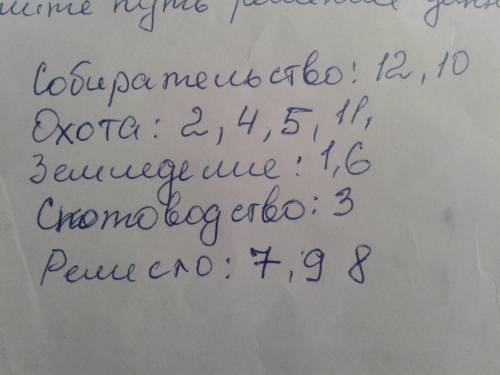 мите путь решения данн
Собирательство: 12, 10
Охота: 2, 4, 5, 11,
Земледелие: 1, 6
Скотоводство: 3
Ремесло: 7, 9 8